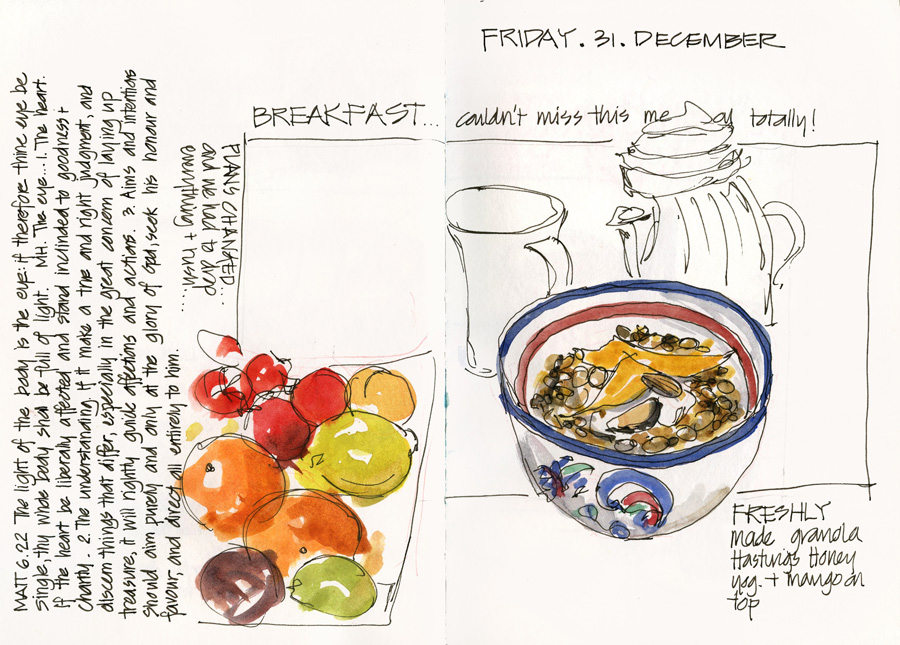 FRIDAY. 31. DECEMBER
BREAKFAST... couldn't miss this me al totally!
MATT 6:22 The light of the body is the eye: if therefore thine eye be
single, thy whole body shall be full of light. MH. The eye...1. The heart.
if the heart be liberally affected and stand inclinded to goodness +
charity. 2. The understanding. If it make a true and right judgment, and
discern things that differ, especially in the great concern of laying up
treasure, it will rightly guide affections and actions. 3. Aims and intentions
should aim purely and only at the glory of God, seek his honour and
favour, and direct all entirely to him.
PLANS CHANGED...
and we had to drop
everything + rush...
FRESHLY
made granola
Hastings Honey
yog. + mango on
top